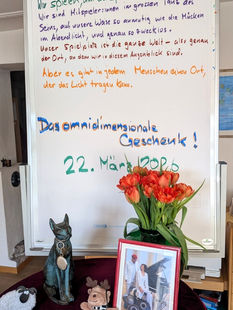 Wir spielen, um
Wir sind Mitspieler:innen im großen Tanz des
Seins, auf unsere Weise so anmutig wie die Mücken
im Abendlicht, und genau so zwecklos.
Unser Spielplatz ist die ganze Welt – also genau
der Ort, an dem wir in diesem Augenblick sind.
Aber es gibt in jedem Menschen einen Ort,
der das Licht tragen kann.
Das omnidimensionale
Geschenk!
22. März 2026